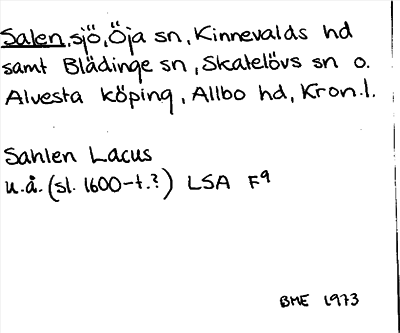 Salen, sjö, Öja sn, Kinnevalds hd
samt Blädinge sn, Skatelövs sn o.
Alvesta köping, Allbo hd, Kron.l.
Sahlen Lacus
u.å. (sl. 1600-t.?) LSA F9
BME 1973